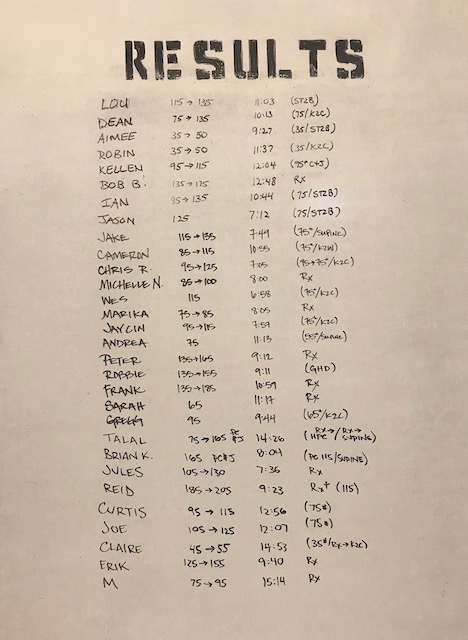 RESULTS
LOU 115→135 11:03 (ST2B)
DEAN 75→135 10:13 (75/K2C)
AIMEE 35→50 9:27 (35/ST2B)
ROBIN 35→50 11:37 (35/K2C)
KELLEN 95→115 12:04 (95# C+J)
BOB B. 135→175 12:48 Rx
IAN 95→135 10:44 (75/ST2B)
JASON 125 7:12 (75/ST2B)
JAKE 115→135 7:49 (75#/SUPINE)
CAMERON 85→115 10:55 (75#/K2W)
CHRIS R. 95→125 7:05 (95→75#/K2C)
MICHELLE N. 85→100 8:00 Rx
WES 115 6:58 (75#/K2C)
MARIKA 75→85 8:05 Rx
JAYCLIN 95→115 7:59 (75#/K2C)
ANDREA 75 11:13 (55#/SUPINE)
PETER 135→165 9:12 Rx
ROBBIE 135→155 9:11 (GHD)
FRANK 135→185 10:59 Rx
SARAH 65 11:17 Rx
GREGG 95 9:44 (65#/K2C)
TALAL 75→165 PC&J 14:26 (Rx→HPC/Rx→SUPINE)
BRIAN K. 165 PC&J 8:04 (PC 115/SUPINE)
JULES 105→130 7:36 Rx
REID 185→205 9:23 Rx+ (115)
CURTIS 95→115 12:56 (75#)
JOE 105→125 12:07 (75#)
CLAIRE 45→55 14:53 (35#/Rx→K2C)
ERIK 125→155 9:40 Rx
M 75→95 15:14 Rx